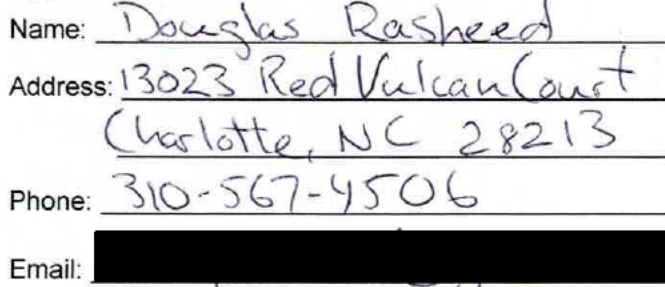 Name: Douglas Rasheed
Address: 13023 Red Vulcan Court
Charlotte, NC 28213
Phone: 310-567-4506
Email: